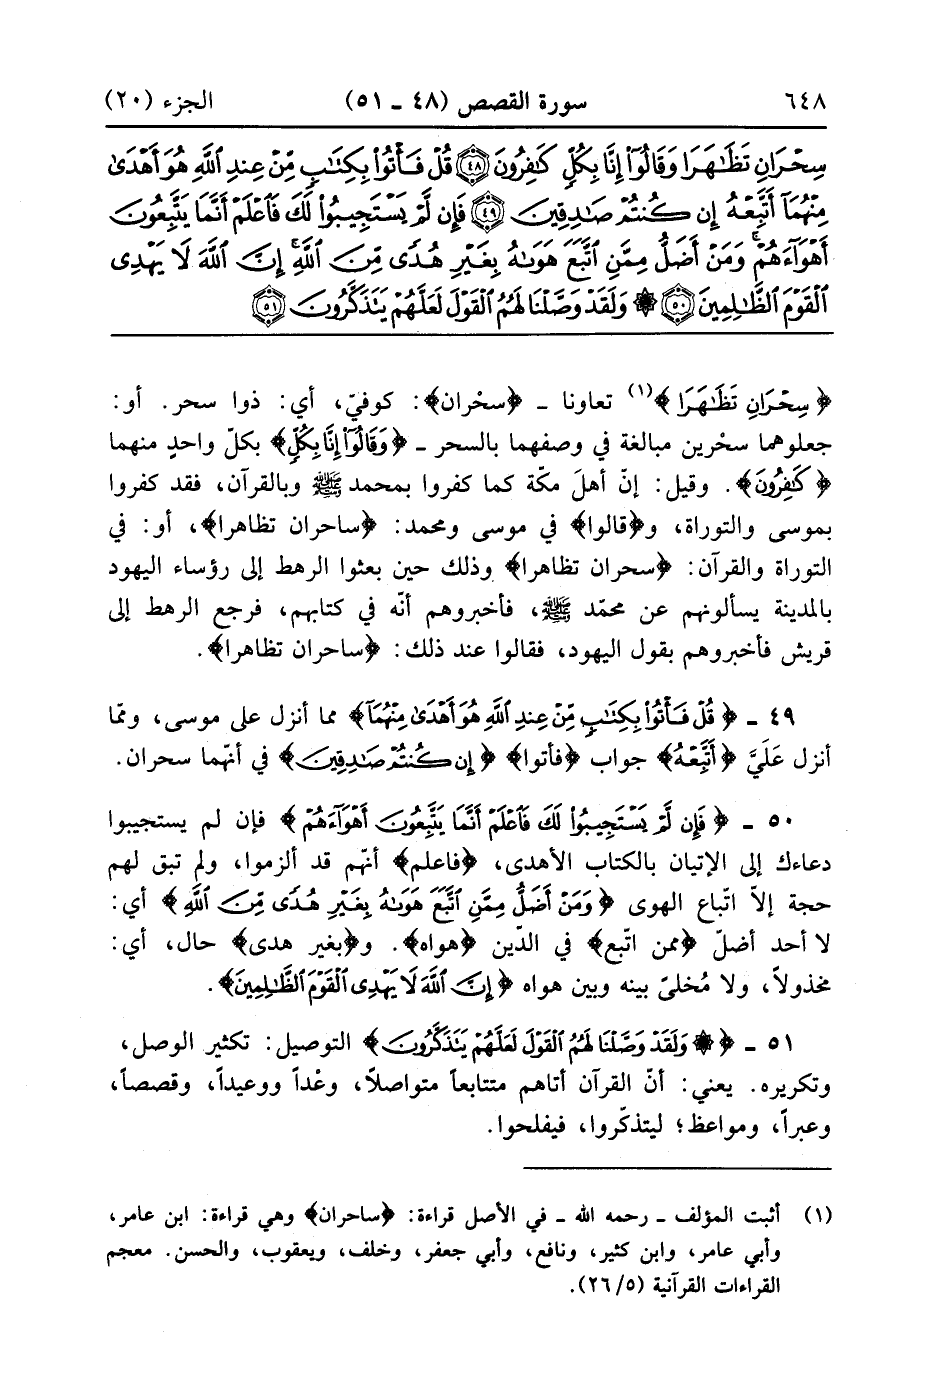 ٦٤٨ سورة القصص (٤٨ ـ ٥١) الجزء (٢٠)
سِحْرَانِ تَظَٰهَرَا وَقَالُوٓا۟ إِنَّا بِكُلٍّ كَٰفِرُونَ ٤٨ قُلْ فَأْتُوا۟ بِكِتَٰبٍ مِّنْ عِندِ ٱللَّهِ هُوَ أَهْدَىٰ
مِنْهُمَآ أَتَّبِعْهُ إِن كُنتُمْ صَٰدِقِينَ ٤٩ فَإِن لَّمْ يَسْتَجِيبُوا۟ لَكَ فَٱعْلَمْ أَنَّمَا يَتَّبِعُونَ
أَهْوَآءَهُمْ ۚ وَمَنْ أَضَلُّ مِمَّنِ ٱتَّبَعَ هَوَىٰهُ بِغَيْرِ هُدًى مِّنَ ٱللَّهِ ۚ إِنَّ ٱللَّهَ لَا يَهْدِى
ٱلْقَوْمَ ٱلظَّٰلِمِينَ ٥٠ ۞ وَلَقَدْ وَصَّلْنَا لَهُمُ ٱلْقَوْلَ لَعَلَّهُمْ يَتَذَكَّرُونَ ٥١
﴿سِحْرَانِ تَظَٰهَرَا﴾(١) تعاونا ـ ﴿سحْران﴾: كوفيّ، أي: ذوا سحر. أو:
جعلوهما سحْرين مبالغة في وصفهما بالسحر ـ ﴿وَقَالُوٓا۟ إِنَّا بِكُلٍّ﴾ بكلّ واحدٍ منهما
﴿كَٰفِرُونَ﴾. وقيل: إنّ أهلَ مكّة كما كفروا بمحمد ﷺ وبالقرآن، فقد كفروا
بموسى والتوراة، و﴿قالوا﴾ في موسى ومحمد: ﴿ساحران تظاهرا﴾، أو: في
التوراة والقرآن: ﴿سحران تظاهرا﴾ وذلك حين بعثوا الرهط إلى رؤساء اليهود
بالمدينة يسألونهم عن محمّد ﷺ، فأخبروهم أنّه في كتابهم، فرجع الرهط إلى
قريش فأخبروهم بقول اليهود، فقالوا عند ذلك: ﴿ساحران تظاهرا﴾.
٤٩ ـ ﴿قُلْ فَأْتُوا۟ بِكِتَٰبٍ مِّنْ عِندِ ٱللَّهِ هُوَ أَهْدَىٰ مِنْهُمَآ﴾ مما أنزل على موسى، وممّا
أنزل عَلَيَّ ﴿أَتَّبِعْهُ﴾ جواب ﴿فأتوا﴾ ﴿إِن كُنتُمْ صَٰدِقِينَ﴾ في أنّهما سحران.
٥٠ ـ ﴿فَإِن لَّمْ يَسْتَجِيبُوا۟ لَكَ فَٱعْلَمْ أَنَّمَا يَتَّبِعُونَ أَهْوَآءَهُمْ﴾ فإن لم يستجيبوا
دعاءك إلى الإتيان بالكتاب الأهدى، ﴿فاعلم﴾ أنّهم قد ألزموا، ولم تبق لهم
حجة إلاّ اتّباع الهوى ﴿وَمَنْ أَضَلُّ مِمَّنِ ٱتَّبَعَ هَوَىٰهُ بِغَيْرِ هُدًى مِّنَ ٱللَّهِ﴾ أي:
لا أحد أضلّ ﴿ممن اتّبع﴾ في الدّين ﴿هواه﴾. و﴿بغير هدى﴾ حال، أي:
مخذولاً، ولا مُخلىّ بينه وبين هواه ﴿إِنَّ ٱللَّهَ لَا يَهْدِى ٱلْقَوْمَ ٱلظَّٰلِمِينَ﴾.
٥١ ـ ﴿۞ وَلَقَدْ وَصَّلْنَا لَهُمُ ٱلْقَوْلَ لَعَلَّهُمْ يَتَذَكَّرُونَ﴾ التوصيل: تكثير الوصل،
وتكريره. يعني: أنّ القرآن أتاهم متتابعاً متواصلاً، وعْداً ووعيداً، وقصصاً،
وعبراً، ومواعظ؛ ليتذكّروا، فيفلحوا.
(١) أثبت المؤلف ـ رحمه الله ـ في الأصل قراءة: ﴿ساحران﴾ وهي قراءة: ابن عامر،
وأبي عامر، وابن كثير، ونافع، وأبي جعفر، وخلف، ويعقوب، والحسن. معجم
القراءات القرآنية (٢٦/٥).